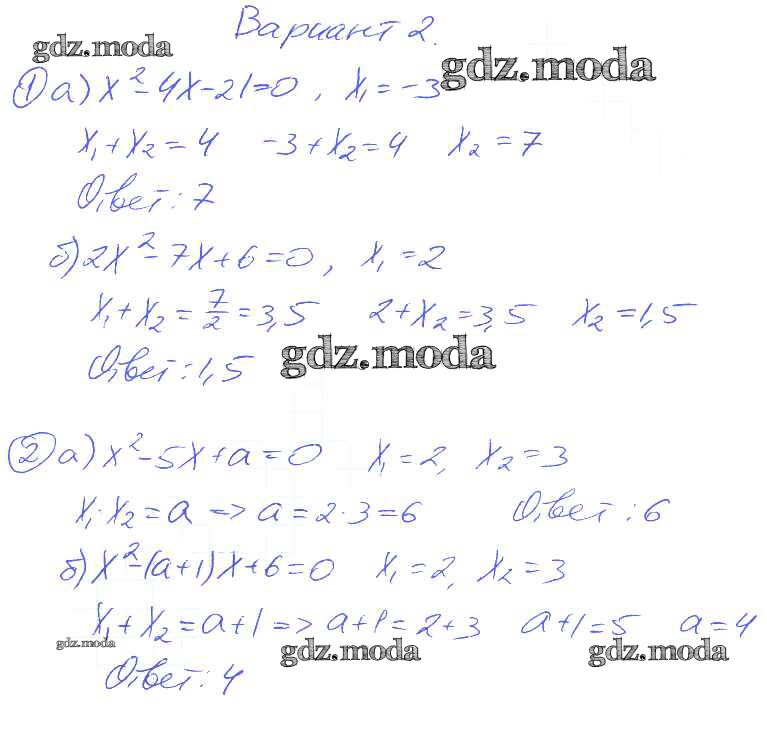 Вариант 2.
gdz.moda
gdz.moda
① а) x² - 4x - 21 = 0 , x₁ = -3
x₁ + x₂ = 4   -3 + x₂ = 4   x₂ = 7
Ответ: 7
б) 2x² - 7x + 6 = 0 , x₁ = 2
x₁ + x₂ = 7/2 = 3,5   2 + x₂ = 3,5   x₂ = 1,5
gdz.moda
Ответ: 1,5
② а) x² - 5x + a = 0   x₁ = 2, x₂ = 3
x₁ · x₂ = a => a = 2 · 3 = 6   Ответ: 6
б) x² - (a+1)x + 6 = 0   x₁ = 2, x₂ = 3
x₁ + x₂ = a+1 => a+1 = 2+3   a+1 = 5   a = 4
gdz.moda
gdz.moda
gdz.moda
Ответ: 4